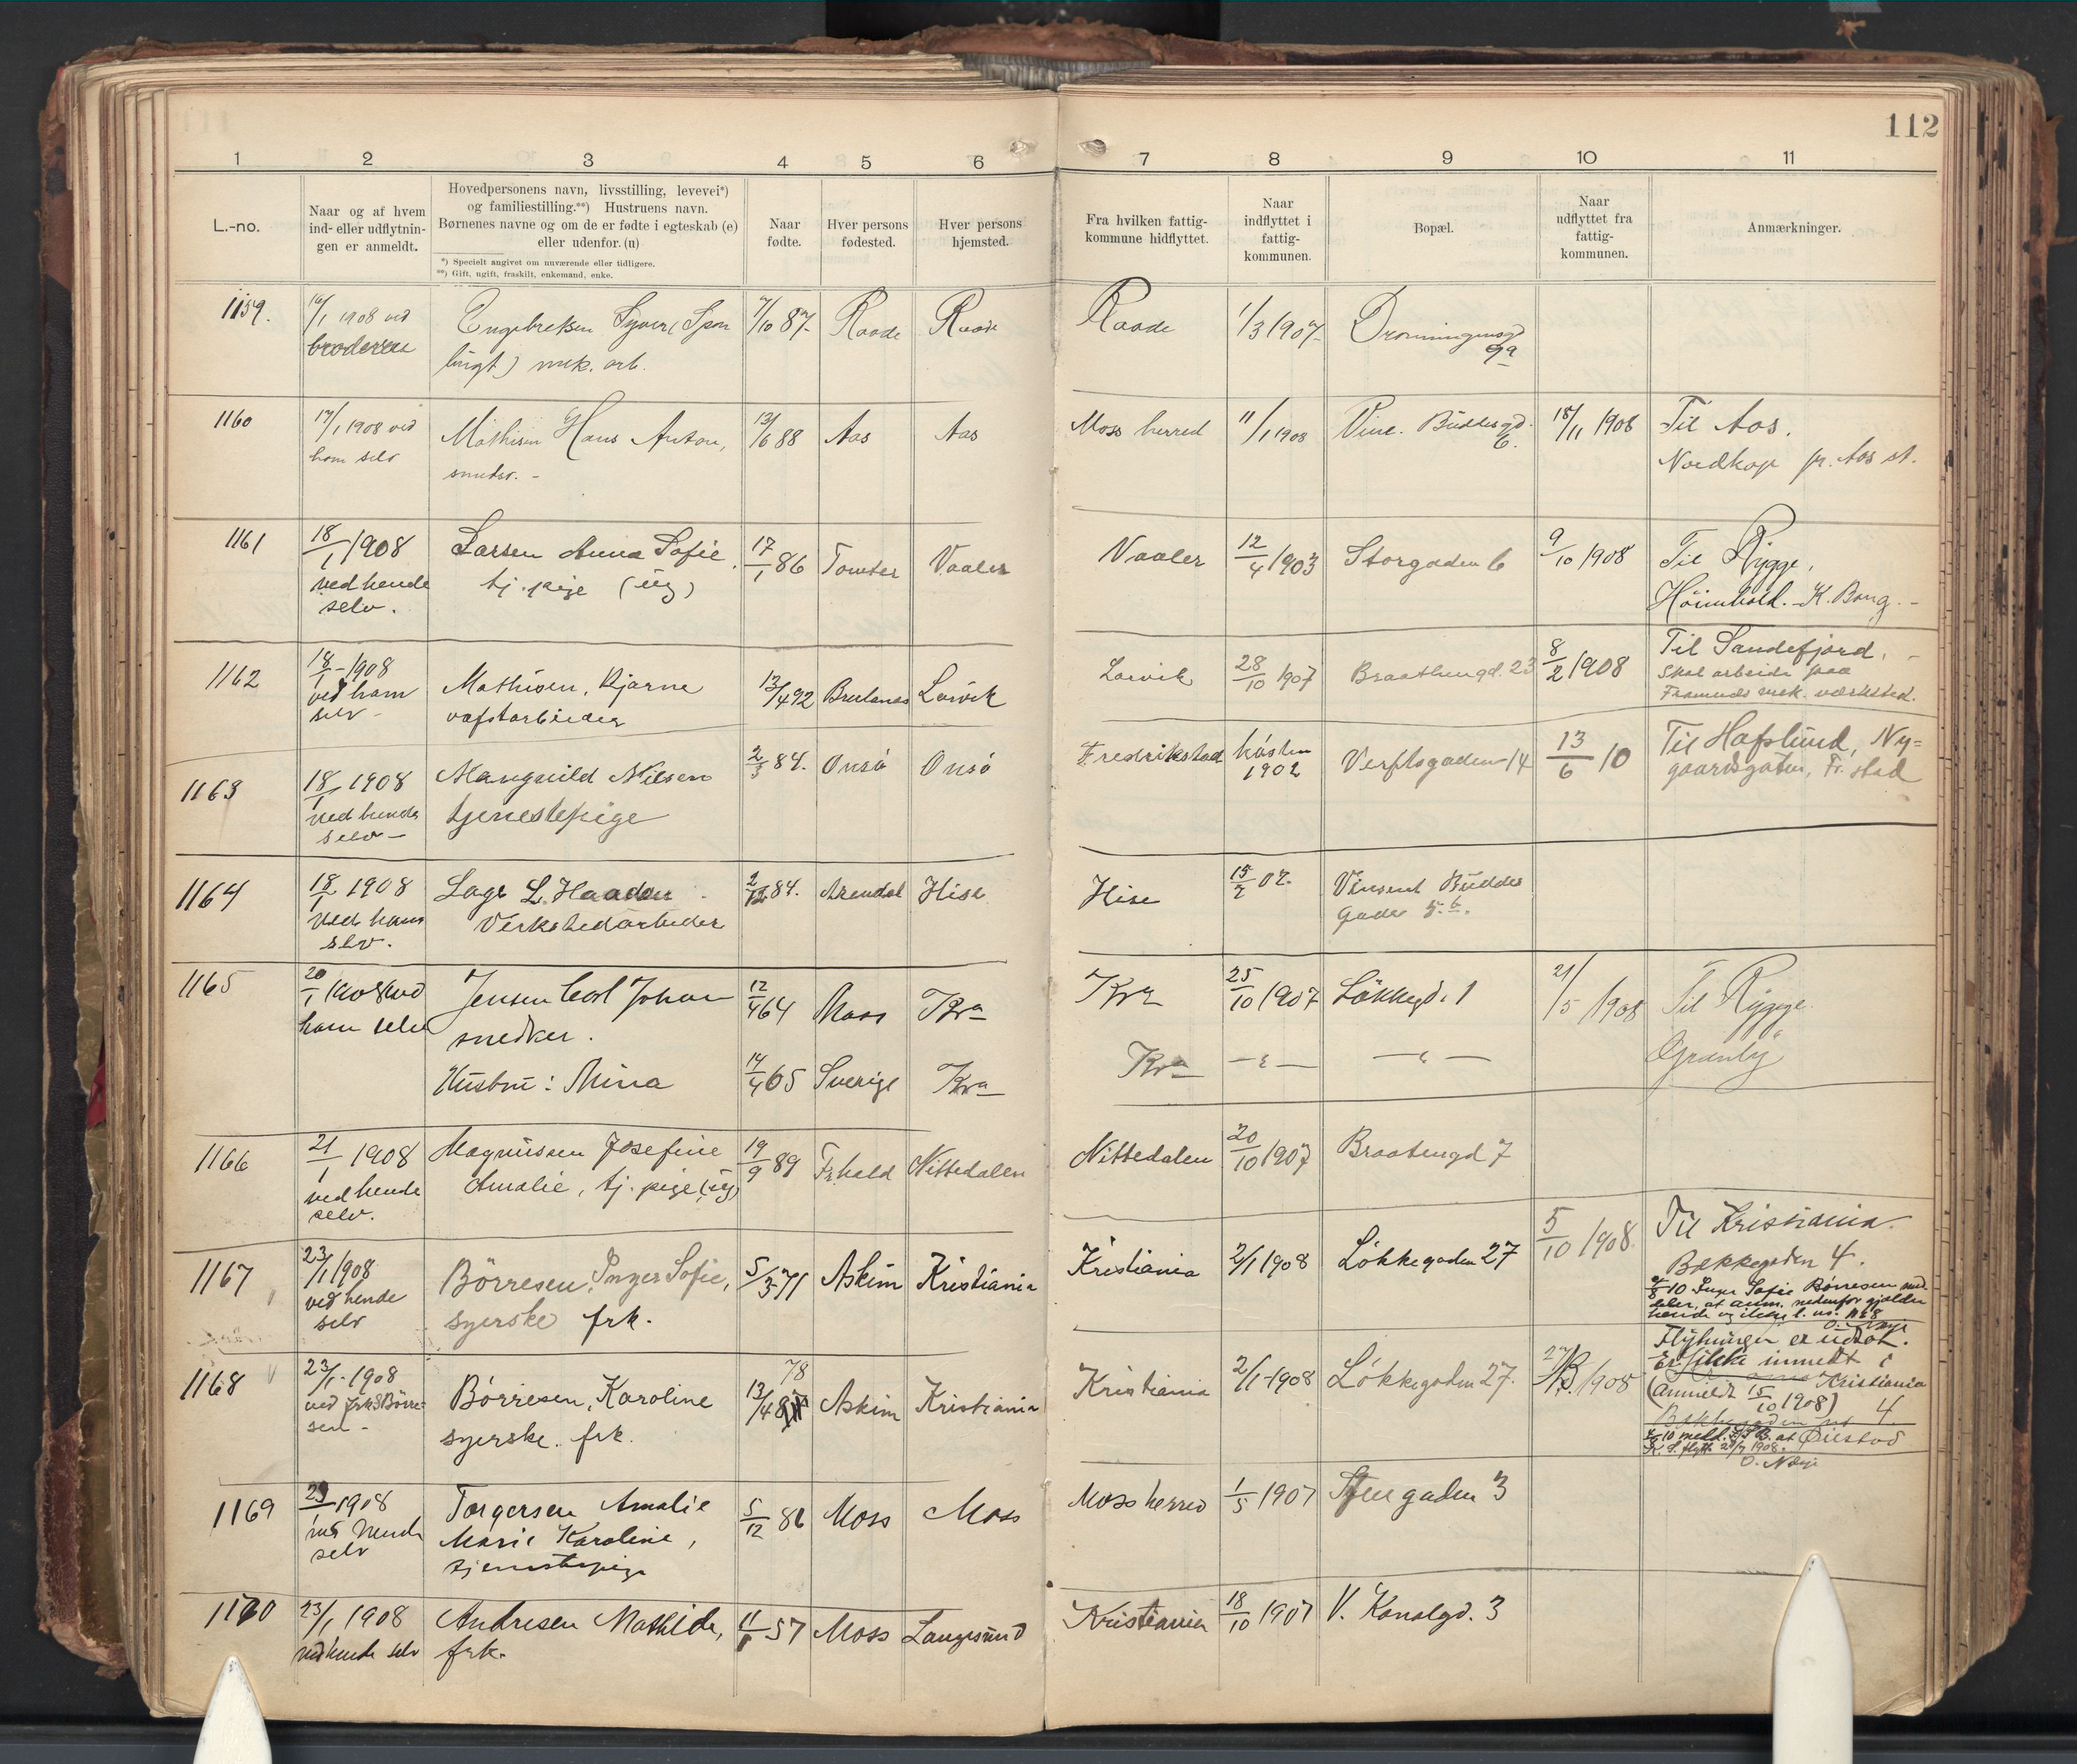 112
1 2 3 4 5 6 7 8 9 10 11
L.-no.
Naar og af hvem
ind- eller udflytnin-
gen er anmeldt.
Hovedpersonens navn, livsstilling, levevei*)
og familiestilling.**) Hustruens navn.
Børnenes navne og om de er fødte i egteskab (e)
eller udenfor. (u)
*) Specielt angivet om nuværende eller tidligere.
**) Gift, ugift, fraskilt, enkemand, enke.
Naar
fødte.
Hver persons
fødested.
Hver persons
hjemsted.
Fra hvilken fattig-
kommune hidflyttet.
Naar
indflyttet i
fattig-
kommunen.
Bopæl.
Naar
udflyttet fra
fattig-
kommunen.
Anmærkninger.
1159. 16/1 1908 ved Engebretsen Syver 7/10 87 Raade Raade Raade 1/3 1907 Dronningensgd
broderen mek. arb. 9a
1160 17/1 1908 ved Mathisen Hans Anton, 13/6 88 Aas Aas Moss herred 11/1 1908 Vinc. Buddesgd. 18/11 1908 Til Aas.
ham selv 6. Nordkap pr. Aas st.
1161 18/1 1908 Larsen Anna Sofie, 17/1 86 Tomter Vaaler Vaaler 12/4 1903 Storgaden 6 9/10 1908 Til Rygge,
ved hende tj. pige (ug) K. Bang.
selv.
1162 18/1 1908 Mathisen, Bjarne 13/4 92 Larvik Larvik 28/10 1907 Braathengd. 23 8/2 1908 Til Sandefjord.
ved ham Skal arbeide paa
selv Framnæs mek. værksted.
1163 18/1 1908 Nilsen 2/3 84. Onsö Onsö Fredrikstad hösten Verftsgaden 14 13/6 10 Til Hafslund, Ny-
ved hende tjenestepige 1902 gaardsgaten, Fr. stad
selv
1164 18/1 1908 Lage L. Haaden 84. Arendal Hise Hise 15/2 07. Vinsent Buddes
ved ham Verkstedarbeider Gade 5.
selv.
1165 20/1 1908 ved Jensen Carl Johan 12/4 64 Moss Kra Kra 25/10 1907 Lökkegd. 1 21/5 1908 Til Rygge.
ham selv snedker. Granly
Hustru: Mina 14/4 65 Sverige Kra Kra — " — — " —
1166 21/1 1908 Magnussen Josefine 19/9 89 Fr.hald Nittedalen Nittedalen 20/10 1907 Braatengd 7
ved hende Amalie, tj. pige (ug)
selv.
1167 23/1 1908 Börresen, Inger Sofie, 5/3 71 Askim Kristiania Kristiania 2/1 1908 Lökkegaden 27 5/10 1908. Til Kristiania.
ved hende syerske frk. Bakkegaden 4.
selv 10 Inger Sofie Börresen med-
deler, at anm. nedenfor gjælder
hende og ikke l. no. 1168
1168 23/1 1908 Börresen, Karoline 13/4 78 Askim Kristiania Kristiania 2/1 1908 Lökkegaden 27. 1908 Flytningen er udsat.
ved frk S Börre- syerske. frk. Er ikke inmeldt i
sen Kristiania
(anmeldt 15/10 1908)
Bakkegaden no 4
1169 1908 Torgersen Amalie 5/12 86 Moss Moss Moss herred 1/5 1907 Stengaden 3
ved hende Marie Karoline,
selv tjenestepige
1170 23/1 1908 Andresen Mathilde, 57 Moss Langesund Kristiania 18/10 1907 V. Kanalgd. 3
ved hende selv frk.